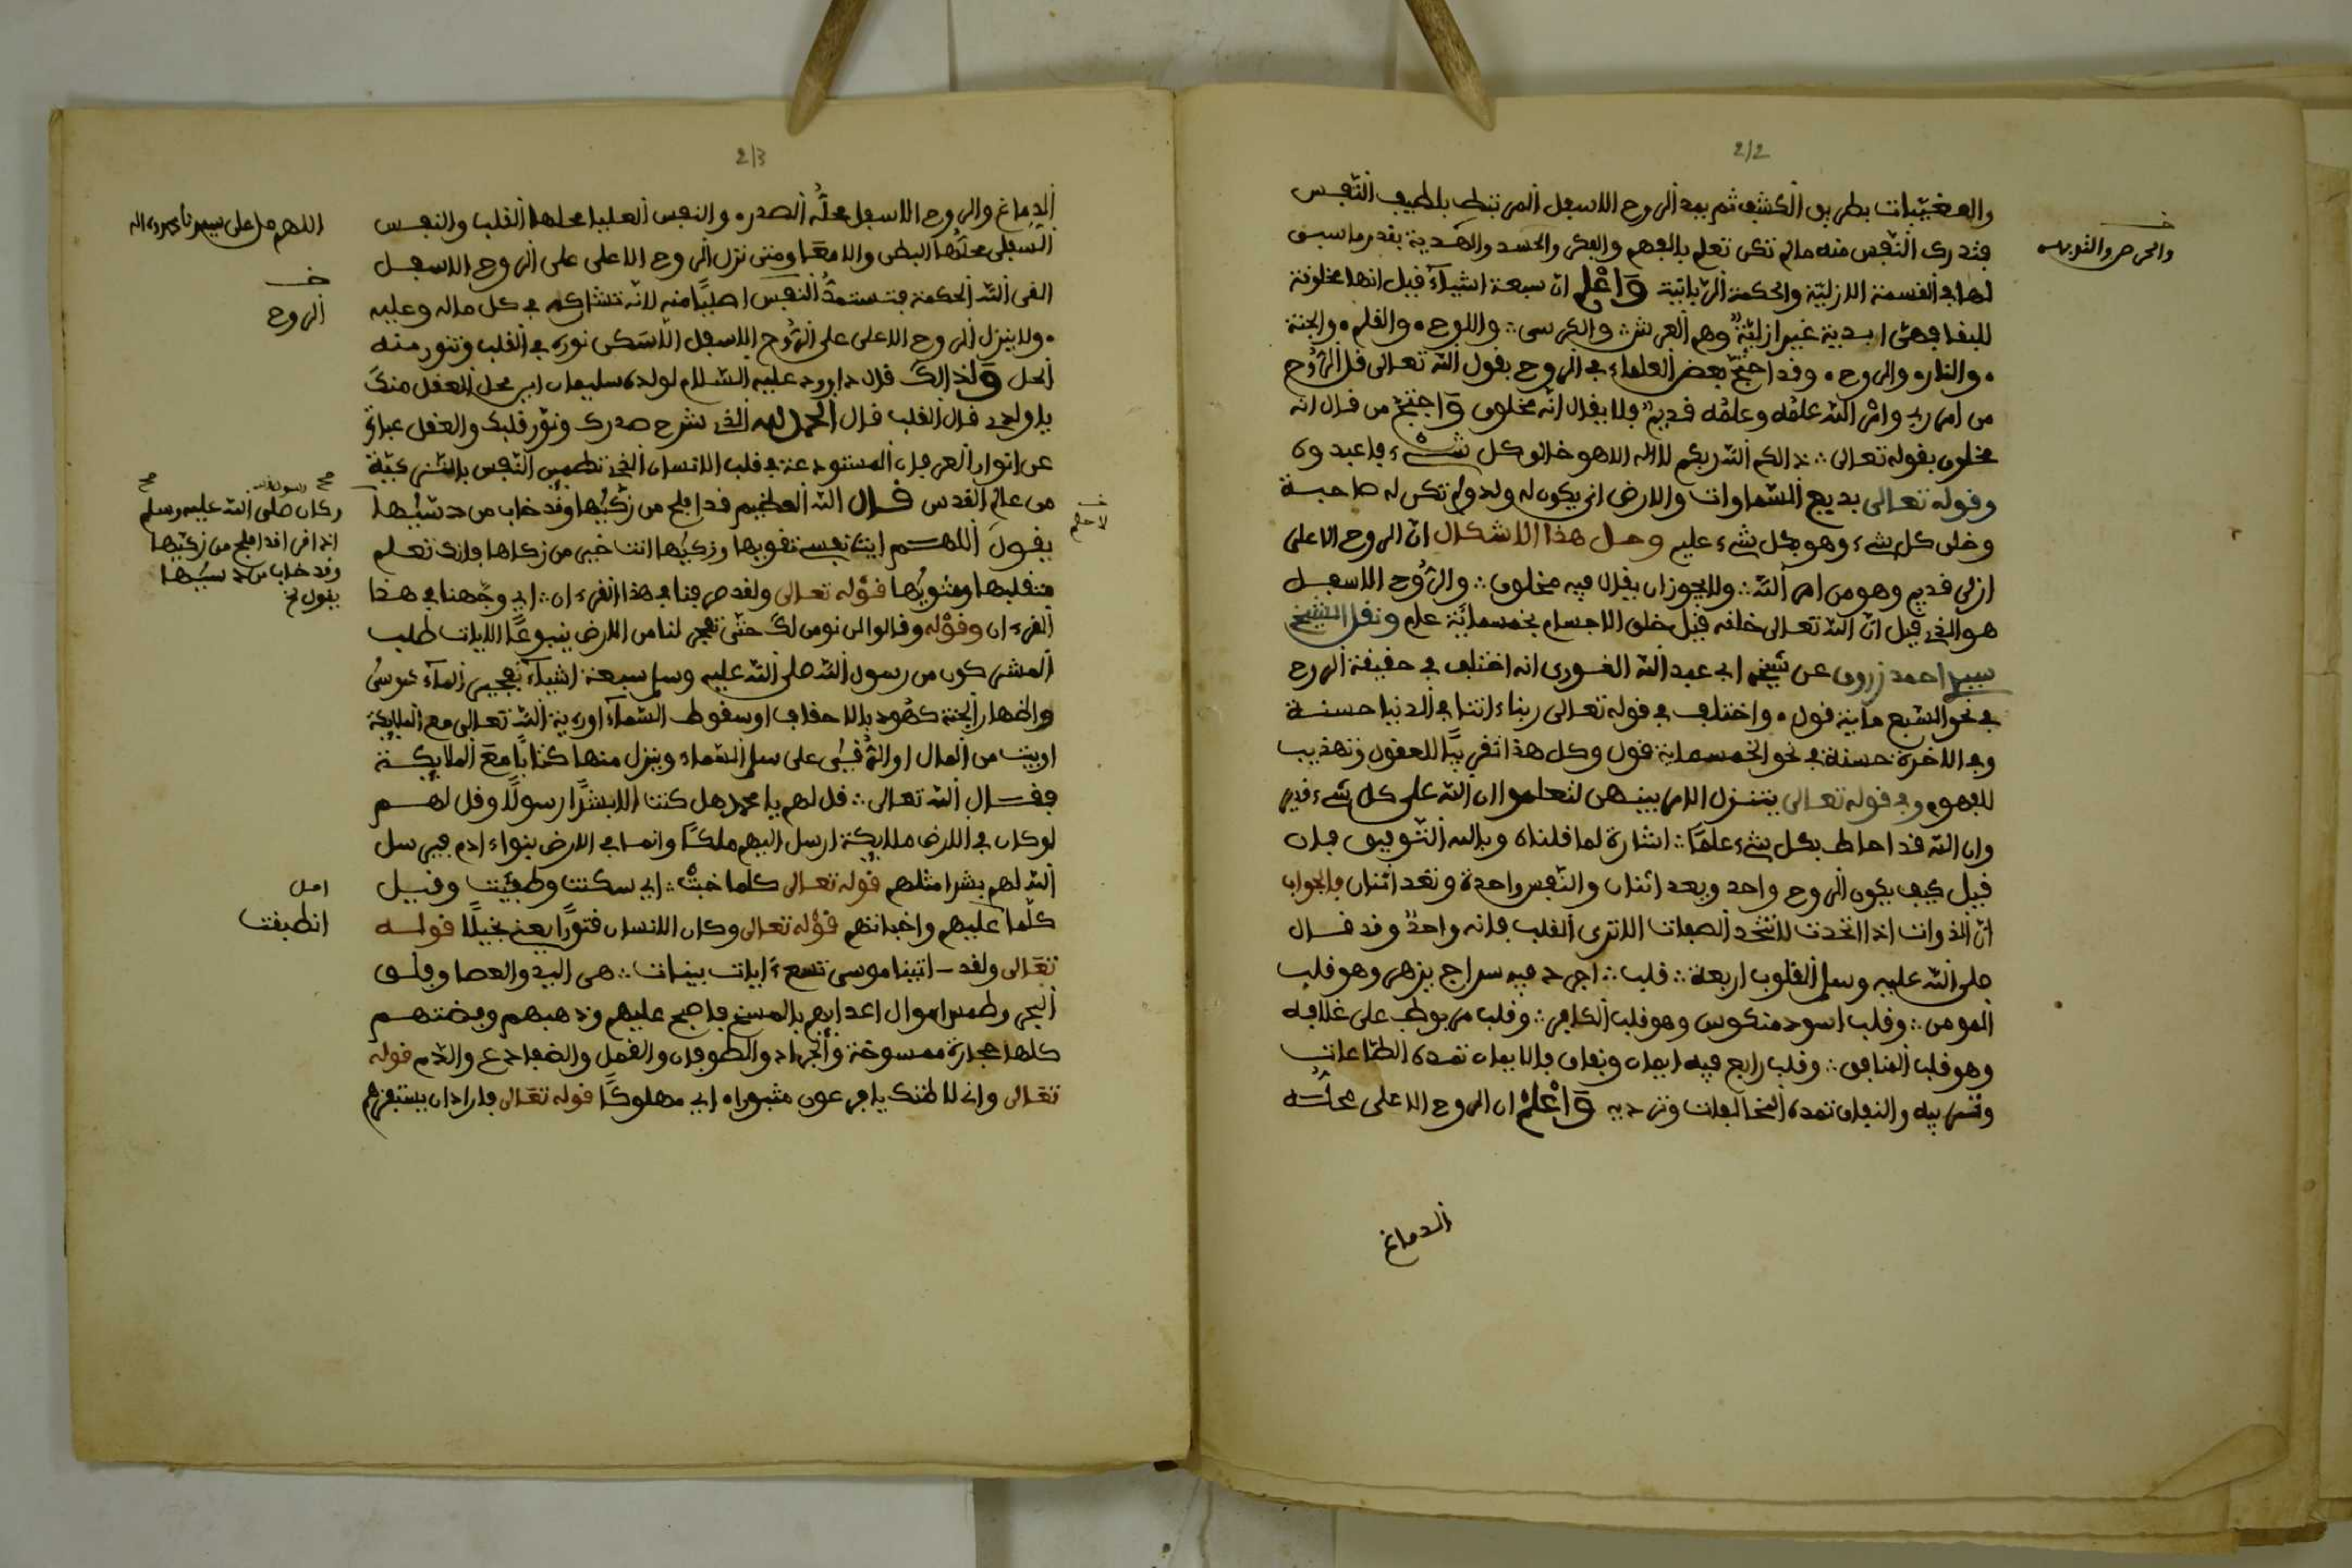 2/2
والمغيّبات بطريق الكشف ثم يمد الروح الاسفل المرتبط بلطيف النفس
فتدرك النفس منه مالم تكن تعلم بالفهم والفكر والحسد والهدية بقدر ماسبق
والحرص والتو
لها في القسمة الازليّة والحكمة الربانيّة وَاعْلم انّ سبعة اشياء قيل انها مخلوقة
للبقا فهى ابدية غير ازليّة وهم العرش والكرسى واللوح والقلم والجنة
والنار والروح وقد احتجّ بعض العلماء في الروح بقول الله تعالى قل الرُّوح
من امر ربي وامر الله علمُه وعلمُه قديم فلا يقال انّه مخلوق وَاحتجّ من قال انّه
مخلوق بقوله تعالى ذالكم الله ربكم لااله الاهو خالق كل شىء فاعبدوه
وقوله تعالى بديع السّماوات والارض انى يكون له ولد ولم تكن له صاحبة
وخلق كل شىء وهو بكل شىء عليم وحل هذا الاشكال انّ الروح الاعلى
ازلى قديم وهو من امر الله ولايجوز ان يقال فيه مخلوق والرُّوح الاسفل
هو الذي قيل انّ الله تعالى خلقه قبل خلق الاجسام بخمسمائة عام ونقل الشيخ
سيدي احمد زروق عن شيخه ابي عبد الله الغورى انه اختلف في حقيقة الروح
في نحو السبع ماية قول واختلف في قوله تعالى ربناء اتنا في الدنيا حسنة
وفي الاخرة حسنة في نحو الخمسماية قول وكل هذا تقريبًا للعقول وتهذيب
للفهوم وفي قوله تعالى يتنزل الامر بينهن لتعلموا ان الله على كل شىء قدير
وان الله قد احاط بكل شىء علمًا اشارة لما قلناه وبالله التّوفيق فان
قيل كيف يكون الروح واحد ويعد اثنان والنّفس واحدة وتعد اثنان فالجواب
انّ الذوات اذا اتحدت لاتتّحد الصفات الاترى القلب فانه واحدٌ وقد قال
صلى الله عليه وسلم القلوب اربعة قلب اجرد فيه سراج يزهر وهو قلب
المومن وقلب اسود منكوس وهو قلب الكافر وقلب مربوط على غلافه
وهو قلب المنافق وقلب رابع فيه ايمان ونفاق فالايمان تمده الطّاعات
وتنميه والنفاق تمده المخالفات وترديه وَاعْلمْ ان الروح الاعلى محلّه
الدماغ
2/3
الدماغ والروح الاسفل محلّه الصدر والنفس العليا محلها القلب والنفس
اللهم صل على سيدنا محمد واله
السّفلى محلّها البطن والامعا ومتى نزل الروح الاعلى على الروح الاسفل
الفى الله الحكمة فتستمدُّ النفس نصيبًا منه لانّه تشاركه في كل ماله وعليه
الروح
ولاينزل الروح الاعلى على الرُّوح الاسفل الاسَكن نوره في القلب وتنور منه
المحل وَلذالك قال داوود عليه السّلام لولده سليمان اين محل العقل منك
ياولدي قال القلب قال الحمد لله الذي شرح صدرك ونوّر قلبك والعقل عبارة
عن انوار العرفان المستودعة في قلب الانسان التي تطمين النّفس بالتّزكيّة
من عالم القدس قال الله العظيم قد افلح من زكّيها وقد خاب من دسّيها
وكان صلى الله عليه وسلم
اذا قرا قد افلح من زكيها
وقد خاب من دسّيها
يقول
يقول اللهم ايت نفسي تقويها وزكيها انت خير من زكاها فانك تعلم
متقلبها ومثويها قوْله تعالى ولقد صرفنا في هذا القرءان اي وجّهنا في هذا
القرءان وقوْله وقالوا لن نومن لك حتّى تفجر لنا من الارض ينبوعًا الايات طلب
المشركون من رسول الله صلى الله عليه وسلم سبعة اشياء تفجير الماء
واظهار الجنة كهود بالاحقاف اوسقوط السّماء اورءية الله تعالى مع الملايكة
اوبيت من المال اوالرُّقيّ على سلم السّماء وينزل منها كتابًا مع الملايكة
فقال الله تعالى قل لهم يا محمد هل كنت الابشرًا رسولًا وقل لهم
لوكان في الارض ملايكة ارسل اليهم ملكًا وانما في الارض بنواء ادم فيرسل
الله لهم بشرا مثلهم قوله تعالى كلما خبتْ اي سكنت وطفيت وقيل
اصل
انطبقت
كلّما عليهم واخذتهم قوْله تعالى وكان الانسان قتورًا يعني بخيلًا قوله
تعَالى ولقد اتينا موسى تسعء ايات بينات هى اليد والعصا وفلق
البحر وطمس اموال اعدايهم بالمسخ فاصبح عليهم وذهبهم وفضتهم
كلها حجارة ممسوخة والجراد والطوفان والقمل والضفادع والدّم قوله
تعَالى وانى لاظنك يافرعون مثبورا اي مهلوكًا قوله تعَالى فاراد ان يستفزهم